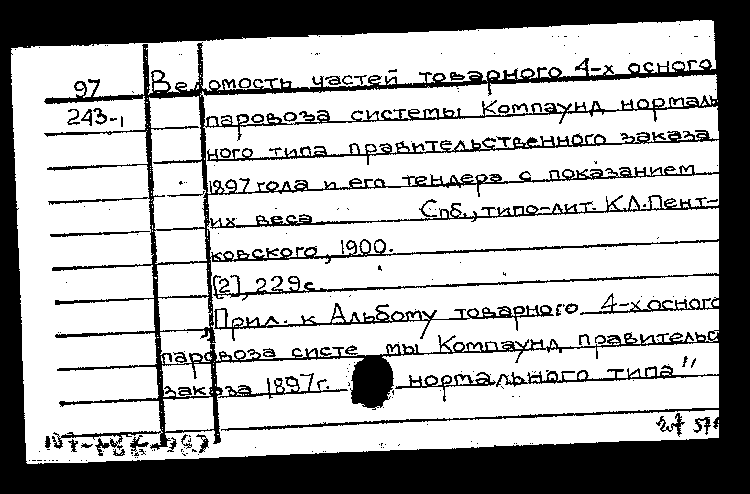 97 Ведомость частей товарного 4-х осного
243-1 паровоза системы Компаунд нормаль
ного типа правительственного заказа
1897 года и его тендера с показанием
их веса Спб., типо-лит. К.Л.Пент-
ковского, 1900.
[2], 229с.
Прил. к Альбому товарного 4-х осного
паровоза систе мы Компаунд правительс
заказа 1897г. нормального типа"